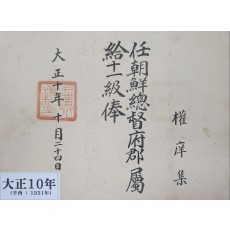 權㢀集
任朝鮮總督府郡屬
給十一級俸
大正十年十月二十四日
大正10年
(辛酉 : 1921年)